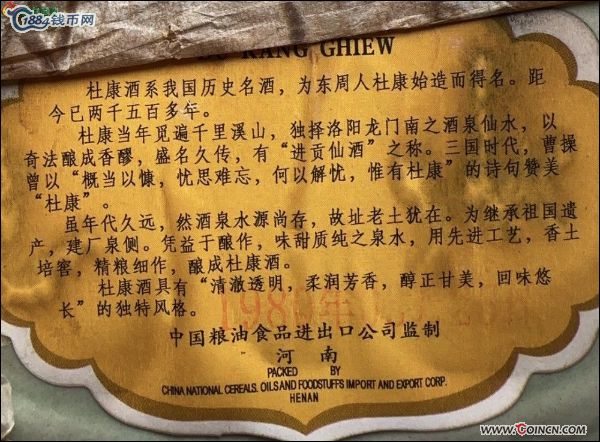 1884钱币网
KANG GHIEW
杜康酒系我国历史名酒，为东周人杜康始造而得名。距
今已两千五百多年。
杜康当年觅遍千里溪山，独择洛阳龙门南之酒泉仙水，以
奇法酿成香醪，盛名久传，有“进贡仙酒”之称。三国时代，曹操
曾以“概当以慷，忧思难忘，何以解忧，惟有杜康”的诗句赞美
“杜康”。
虽年代久远，然酒泉水源尚存，故址老土犹在。为继承祖国遗
产，建厂泉侧。凭益于酿作，味甜质纯之泉水，用先进工艺，香土
培窖，精粮细作，酿成杜康酒。
杜康酒具有“清澈透明，柔润芳香，醇正甘美，回味悠
长”的独特风格。
中国粮油食品进出口公司监制
河南
PACKED BY
CHINA NATIONAL CEREALS. OILS AND FOODSTUFFS IMPORT AND EXPORT CORP.
HENAN
www.COINCN.com